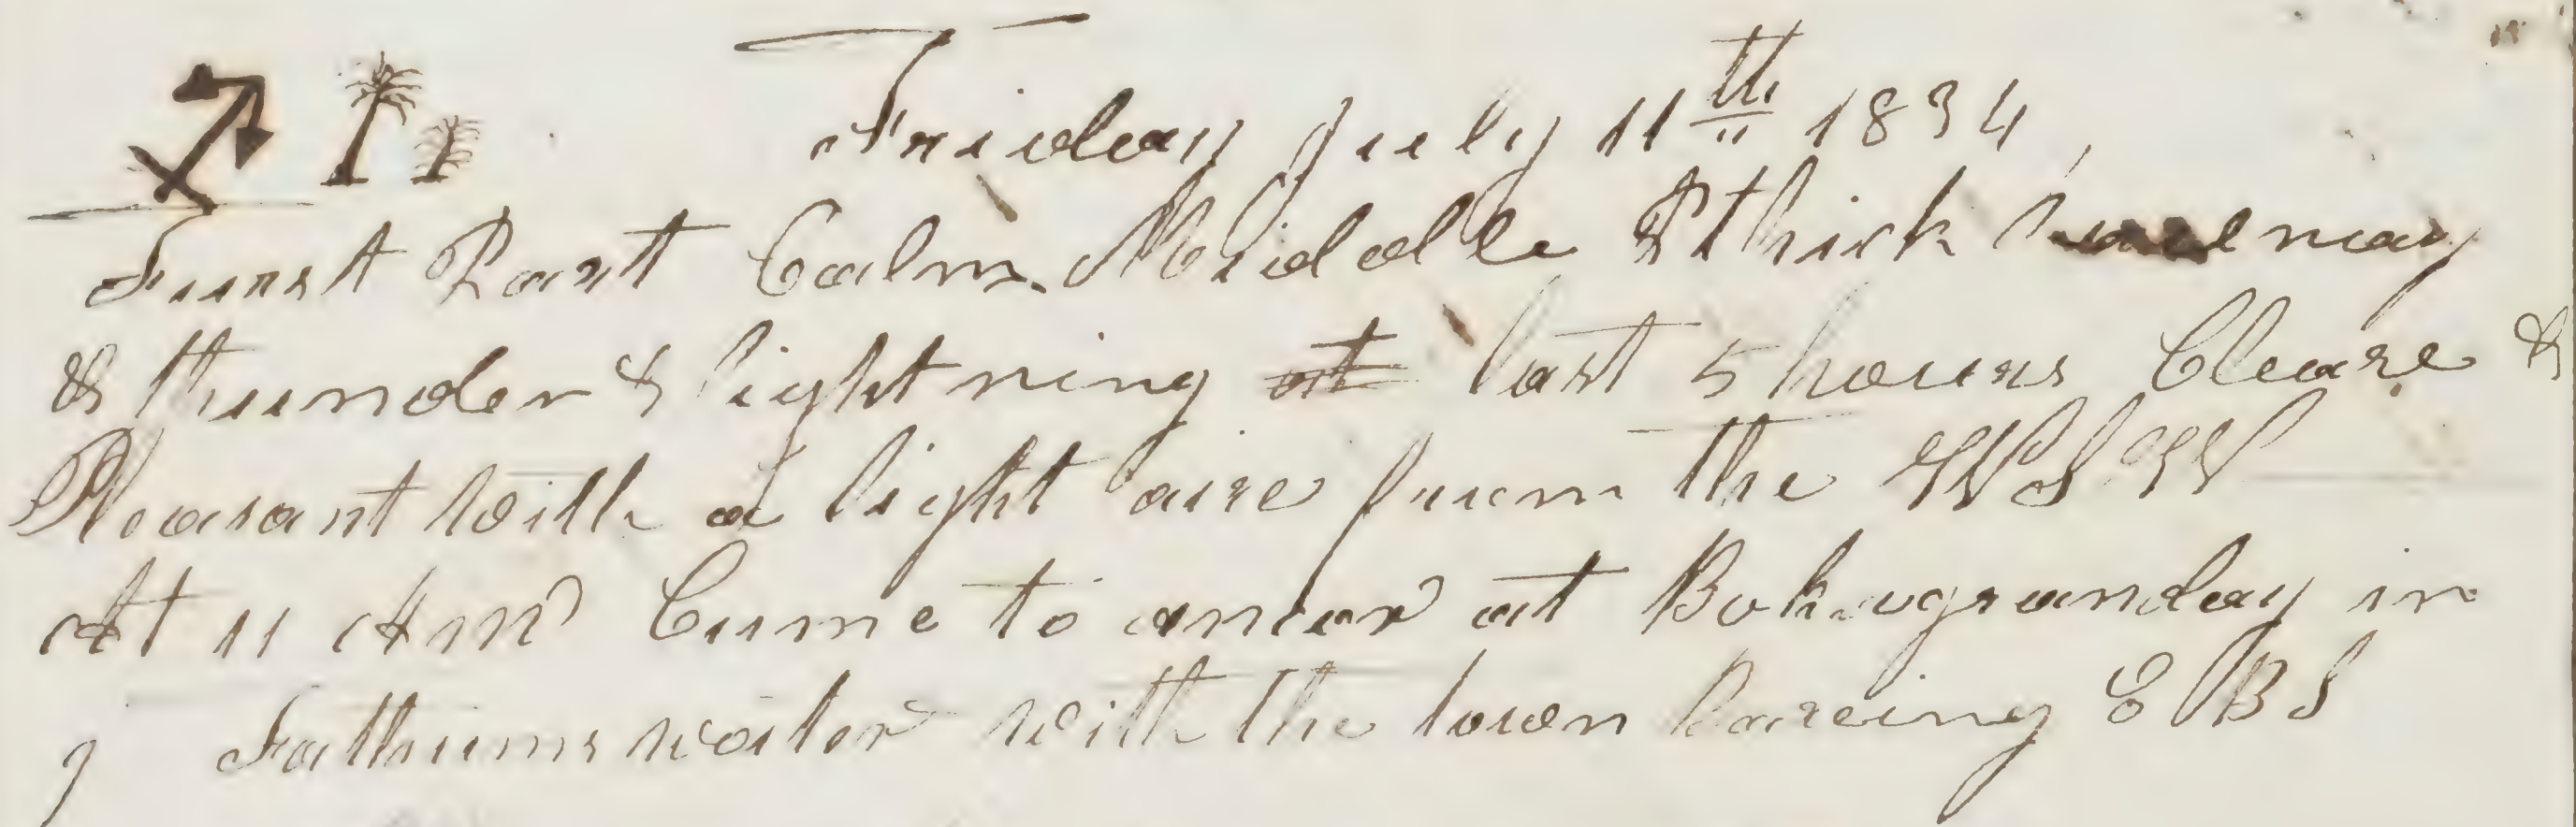 Friday July 11th 1834,
Furst Part Calm. Middle P thick
& thunder & lightning at last 5 hours Cleare &
Pleasant with a light aire frum the WSW
At 11 AM Cume to ancor at Bokagranday in
9 Fathums water with the town bareing E B S